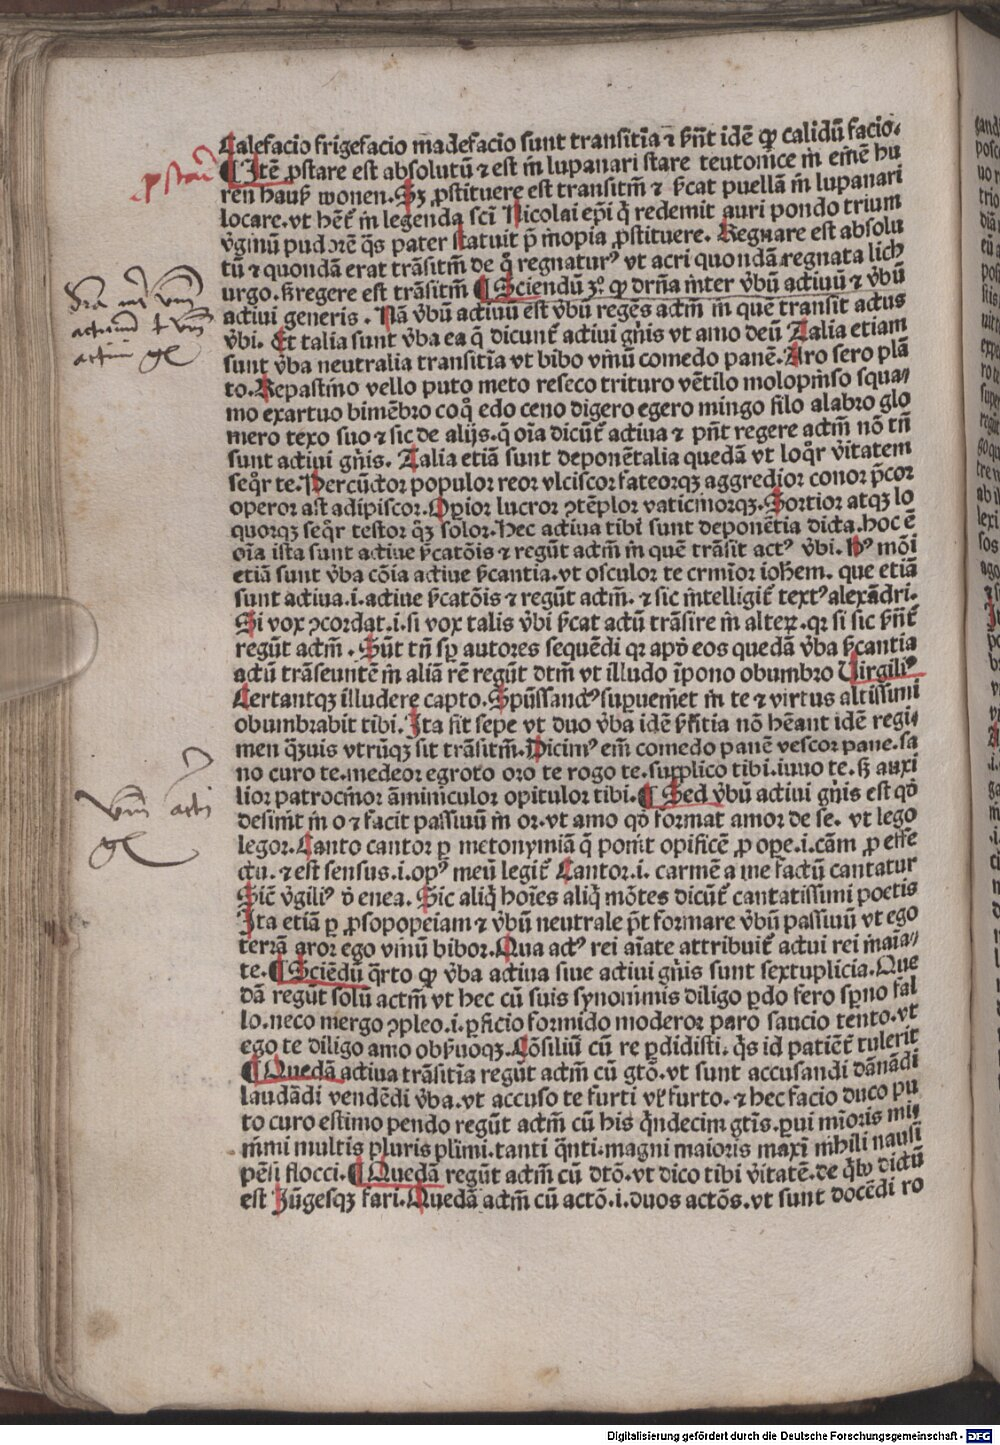 Calefacio frigefacio madefacio sunt transitīa ⁊ ẜn̄t idē ꝙ calidū facio.
¶ Itē ꝓstare est absolutū ⁊ est in lupanari stare teutonice in emē hu
ren hauß wonen. Sꝫ ꝓstituere est transitm̄ ⁊ ẜcat puellā in lupanari
locare. vt hēt̄ in legenda scī Nicolai ep̄i q̄ redemit auri pondo trium
v̄ginū pudorē q̄s pater statuit p̄ inopia ꝓstituere. Regnare est absolu
tū ⁊ quondā erat trāsitm̄ de q̄ regnaturꝰ vt acri quondā regnata lich
urgo. ẜregere est trāsitm̄ ¶ Sciendū ꝫº ꝙ dr̄na inter v̄bū actiuū ⁊ v̄bū
actiui generis. Nā v̄bū actiuū est v̄bū regēs actm̄ in quē transit actus
v̄bi. Et talia sunt v̄ba ea q̄ dicunt̄ actiui gn̄is vt amo deū Talia etiam
sunt v̄ba neutralia transitīa vt bibo vinū comedo panē. Aro sero plā
to. Repastino vello puto meto reseco trituro vētilo molo pinso squa⸗
mo exartuo bimēbro coq̄ edo ceno digero egero mingo filo alabro glo
mero texo suo ⁊ sic de alijs. q̄ oīa dicūt̄ actiua ⁊ pn̄t regere actm̄ nō tn̄
sunt actiui gn̄is. Talia etiā sunt deponētalia quedā vt loq̄r v̄itatem
seq̄r te. Percūctor populor reor vlciscor fateorqꝫ aggredior conor p̄cor
operor ast adipiscor. Opior lucror ꝯtēplor vaticinorqꝫ. Sortior atqꝫ lo
quorqꝫ seq̄r testor q̄ꝫ solor. Hec actiua tibi sunt deponētia dicta. hoc ē
oīa ista sunt actiue ẜcatōis ⁊ regūt actm̄ in quē trāsit actꝰ v̄bi. Hꝰ mōi
etiā sunt v̄ba cōia actiue ẜcantia. vt osculor te crimīor ioh̄em. que etiā
sunt actiua .i. actiue ẜcatōis ⁊ regūt actm̄. ⁊ sic intelligit̄ textꝰ alexādri.
Si vox ꝯcordat .i. si vox talis v̄bi ẜcat actū trāsire in alteꝝ. qꝛ si sic ẜn̄t̄
regūt actm̄. Sūt tn̄ sꝑ autores sequēdi qꝛ apō eos quedā v̄ba ẜcantia
actū trāseuntē in aliā rē regūt dtm̄ vt illudo īpono obumbro Uirgiliꝰ
Certantqꝫ illudere capto. Spūssanctꝰ supueniet in te ⁊ virtus altissimi
obumbrabit tibi. Ita fit sepe vt duo v̄ba idē ẜfitia nō hēant idē regi⸗
men q̄ꝫuis vtrūqꝫ sit trāsitm̄. Dicimꝰ eīn comedo panē vescor pane. sa
no curo te. medeor egroto oro te rogo te. supplico tibi. iuuo te. ẜꝫ auxi
lior patrocinor āminiculor opitulor tibi. ¶ Sed v̄bū actiui gn̄is est qd̄
desinit in o ⁊ facit passiuū in or. vt amo qd̄ format amor de se. vt lego
legor. Canto cantor ꝑ metonymiā q̄ ponit opificē ꝓ ope .i. cām ꝓ effe
ctu. ⁊ est sensus .i. opꝰ meū legit̄ Cantor .i. carmē a me factū cantatur
Sicī v̄giliꝰ ī enea. Sic aliq̄ hoīes aliq̄ mōtes dicūt̄ cantatissimi poetis
Ita etiā ꝑ ꝓsopopeiam ⁊ v̄bū neutrale p̄t formare v̄bū passiuū vt ego
terrā aror ego vinū bibor. Qua actꝰ rei aīate attribuit̄ actui rei inaīa⸗
te. ¶ Sciēdū q̄rto ꝙ v̄ba actiua siue actiui gn̄is sunt sextuplicia. Que
dā regūt solū actm̄ vt hec cū suis synonimis diligo ꝑdo fero sꝑno fal
lo. neco mergo ꝯpleo .i. ꝑficio formido moderor paro saucio tento. vt
ego te diligo amo obẜuoqꝫ. Cōsiliū cū re ꝑdidisti. q̄s id patiēt̄ tulerit
¶ Quedā actiua trāsitīa regūt actm̄ cū gtō. vt sunt accusandi dānādi
laudādi vendēdi v̄ba. vt accuso te furti vl̄ furto. ⁊ hec facio duco pu
to curo estimo pendo regūt actm̄ cū his q̄ndecim gtīs. ꝑui mīoris mi⸗
nīmi multis pluris plīmi. tanti q̄nti. magni maioris maxī nihili nausī
pēsi flocci. ¶ Quedā regūt actm̄ cū dtō. vt dico tibi v̄itatē. de q̄bꝰ dictū
est Iūgesqꝫ fari. Quedā actm̄ cū actō .i. duos actōs. vt sunt docēdi ro
ꝓstare
actiuum
Digitalisierung gefördert durch die Deutsche Forschungsgemeinschaft - DFG